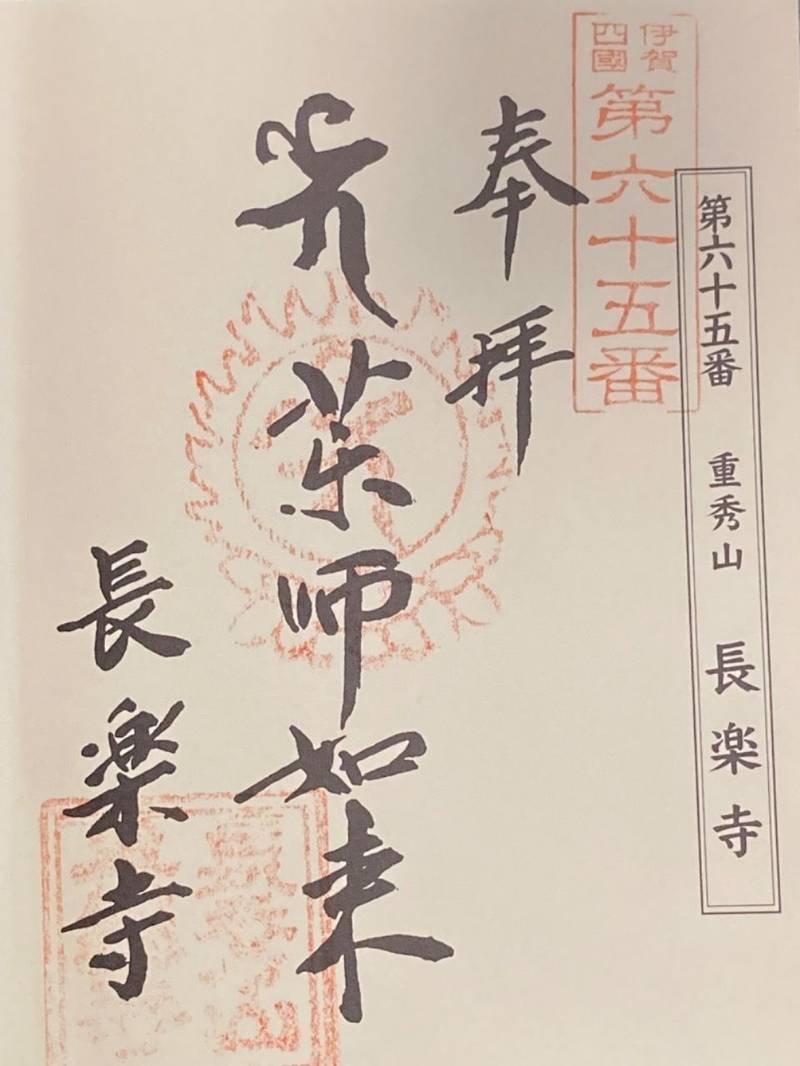 伊賀
四國
第六十五番
第六十五番 重秀山 長楽寺
奉拝
薬師如来
長楽寺